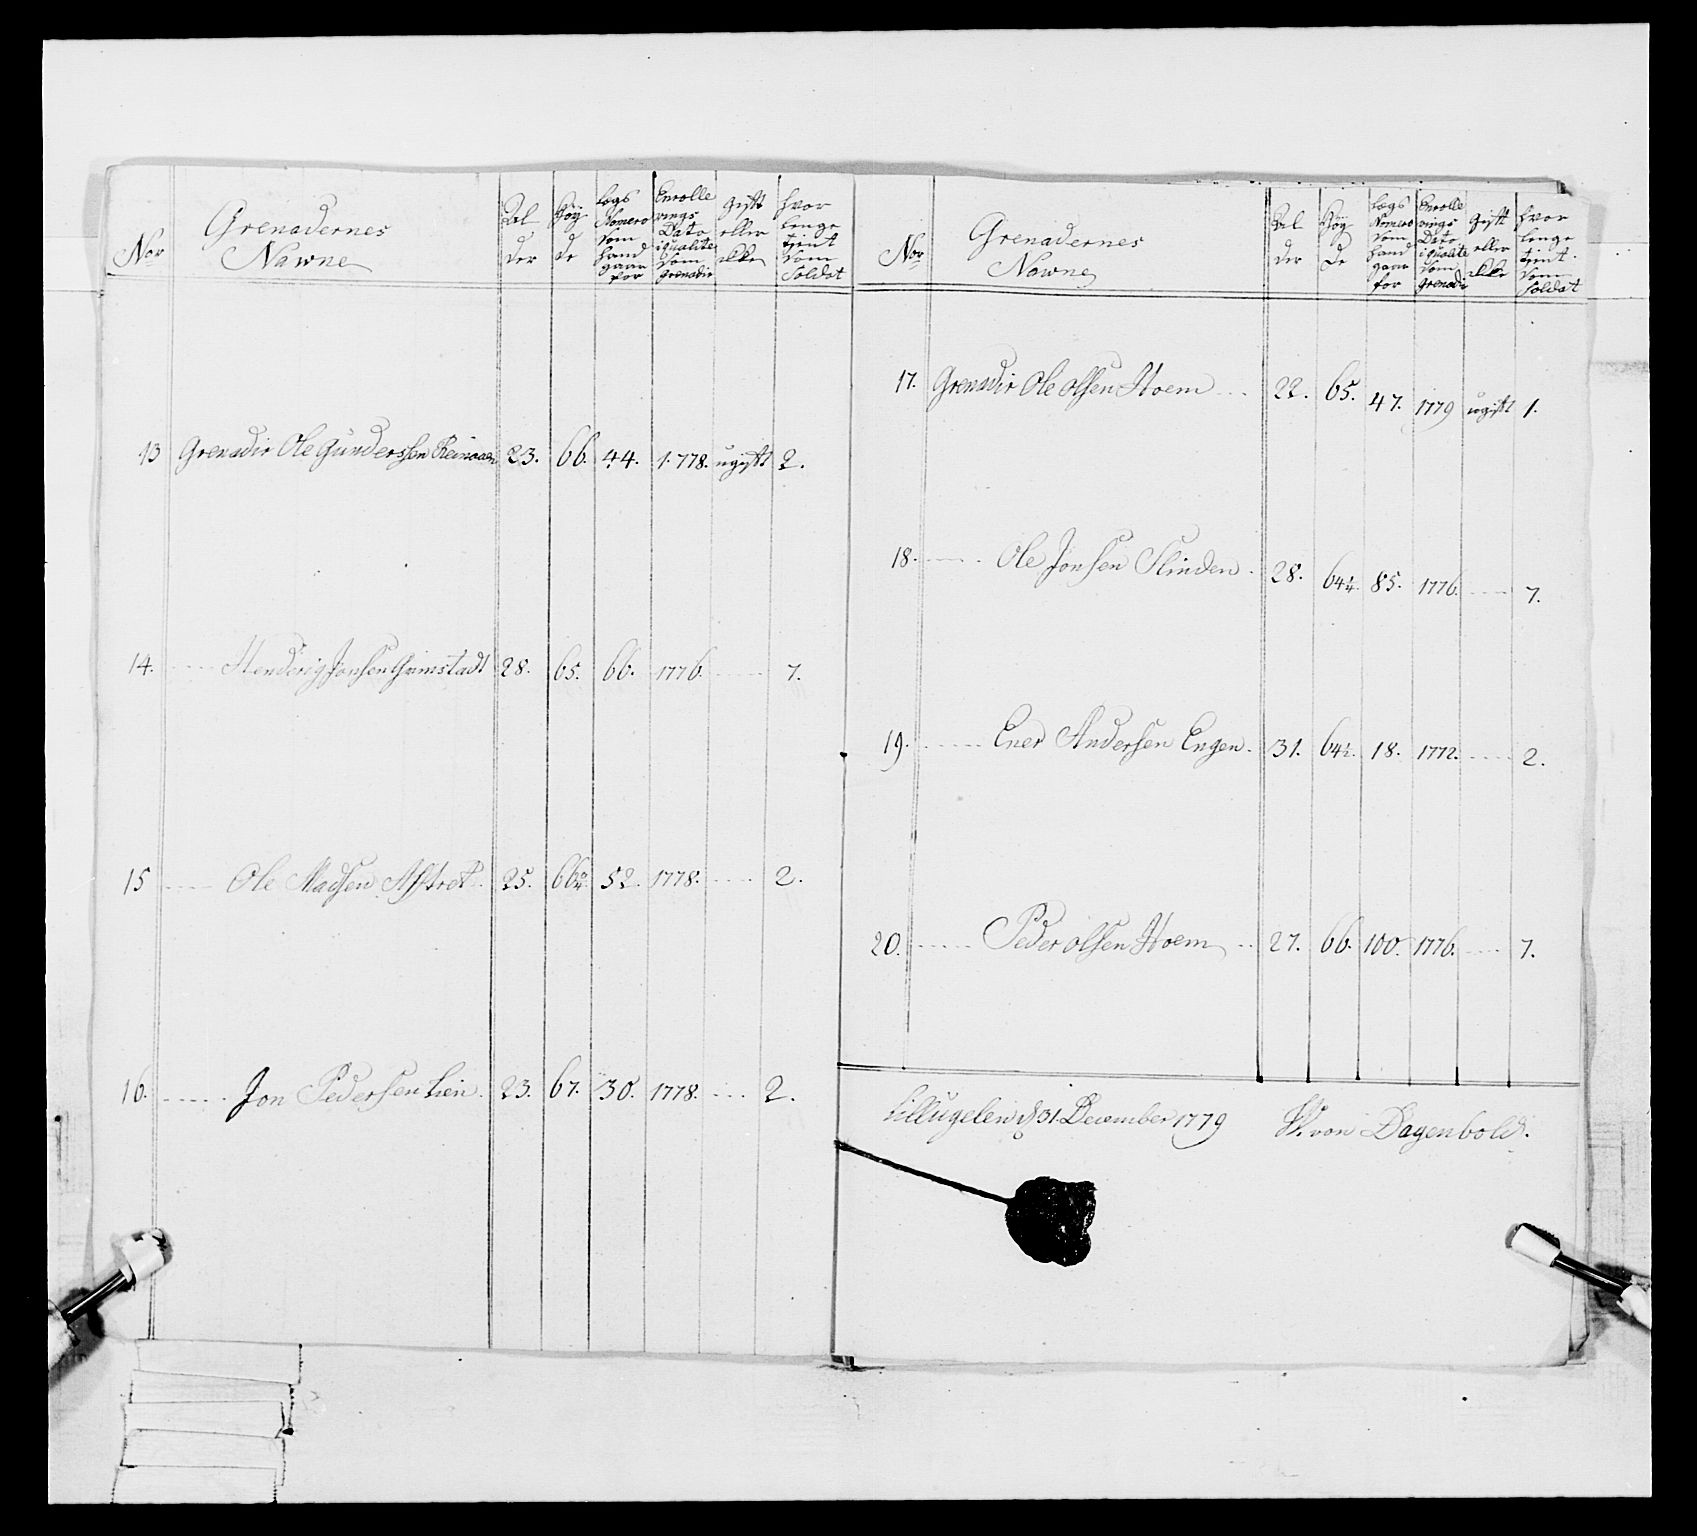 Nor Grenadernes Nawne Al der Høy de Legs Nomero som hand gaar for Enrolle rings Dato i qualite som grenadir gift eller ikke hvor lenge tient som Soldat
13 Grenadir Ole Gunderssen 23. 66. 44. 1778. ugift 2.
14. Henderig Jonsen Grimstadt 28. 65. 66. 1776. 7.
15 Ole Madsen 25. 66 52. 1778. 2.
16. Jon Pedersen Lien 23. 67. 30. 1778. 2.
Nor Grenadernes Nawne Al der Høy de Legs Nomero som hand gaar for Enrolle rings Dato i qualite som grenadir gift eller ikke hvor lenge tient som Soldat
17. Grenadir Ole Olsen Hoem 22. 65. 47. 1779 ugift 1.
18. Ole Jonsen Slinden 28. 64 85. 1776. 7.
19. Ener Andersen Engen 31. 64 18. 1772. 2.
20. Peder Olsen Hoem 27. 66. 100. 1776. 7.
d 31. December 1779 W. von Dagenbold.